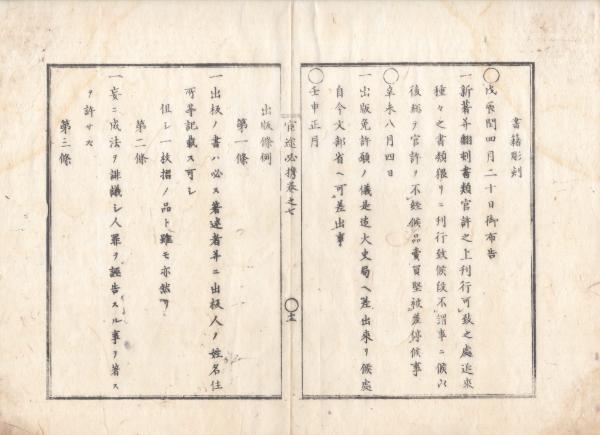 書籍彫刻
〇戊辰閏四月二十日御布告
一新著并翻刻書類官許之上刊行可致之處近來
種々之書類猥リニ刊行致候段不謂事ニ候以
後総テ官許ヲ不經候品賣買堅被差停候事
〇辛未八月四日
一出版免許願ノ儀是迠大史局ヘ差出來リ候處
自今文部省ヘ可差出事
〇壬申正月
官途必携巻之七
出版條例
第一條
一出板ノ書ハ必ス著述者并ニ出板人ノ姓名住
所等記載ス可シ
但シ一枚摺ノ品ト雖モ亦然リ
第二條
一妄ニ成法ヲ誹議シ人罪ヲ誣告スル事ヲ著ス
ヲ許サス
第三條